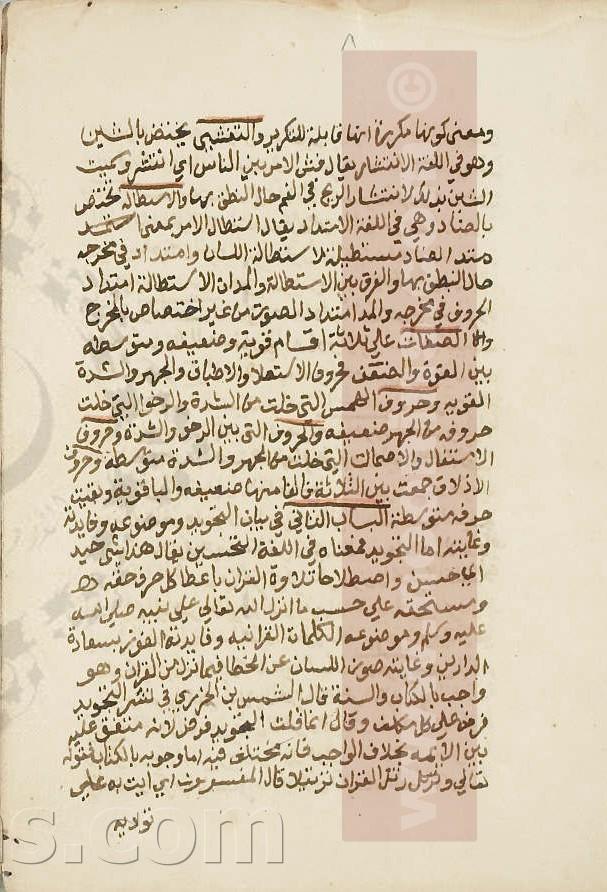 ومعنى كونها مكررة انها قابلة للتكرير والتفشي يختص بالشين
وهو في اللغة الانتشار يقال فشى الامر بين الناس اي انتشر وسميت
الشين بذلك لانتشار الريح في الفم حال النطق بها والاستطالة تختص
بالضاد وهي في اللغة الامتداد يقال استطال الامر بمعنى امتد
الضاد مستطيلة لاستطالة اللسان وامتداد في مخرجه
حال النطق بها والفرق بين الاستطالة والمد ان الاستطالة امتداد
الحروف في مخرجه والمد امتداد الصوت من غير اختصاص بالمخرج
الصفات على ثلاثة اقسام قوية وضعيفه ومتوسطه
بين القوة والضعف فحروف الاستعلا والاطباق والجهر والشدة
القويه وحروف الهمس التي خلت من الشدة والرخوا التي خلت
حروفه من الجهر ضعيفه والحروف التي بين الرخو والشدة وحروف
الاستفال والاصمات التي خلت من الجهر والشدة متوسطه وحروف
الاذلاق جمعت بين الثلاثة فالفا منها ضعيفه والبا قوية وبقيت
حرفه متوسطة الباب الثاني في بيان التجويد وموضوعه وفايدته
وغايته اما التجويد فمعناه في اللغة التحسين يقال هذا شي جيد
اي حسن واصطلاحا تلاوة القران باعطا كل حرف حقه
ومستحقه على حسب ما انزل الله تعالى على نبيه صلى الله
عليه وسلم وموضوعه الكلمات القرانيه وفايدته الفوز بسعادة
الدارين وغايته صون اللسان عن الخطا فيما نزل من القران وهو
واجب بالكتاب والسنة قال الشمس بن الجزري في نشر التجويد
فرض على كل مكلف وقال انما قلت التجويد فرض لانه متفق عليه
بين الايمه بخلاف الواجب فانه مختلف فيه اما وجوبه بالكتاب فقوله
تعالى ورتل القران ترتيلا قال المفسرون اي ايت به على
تودية
s.com
©